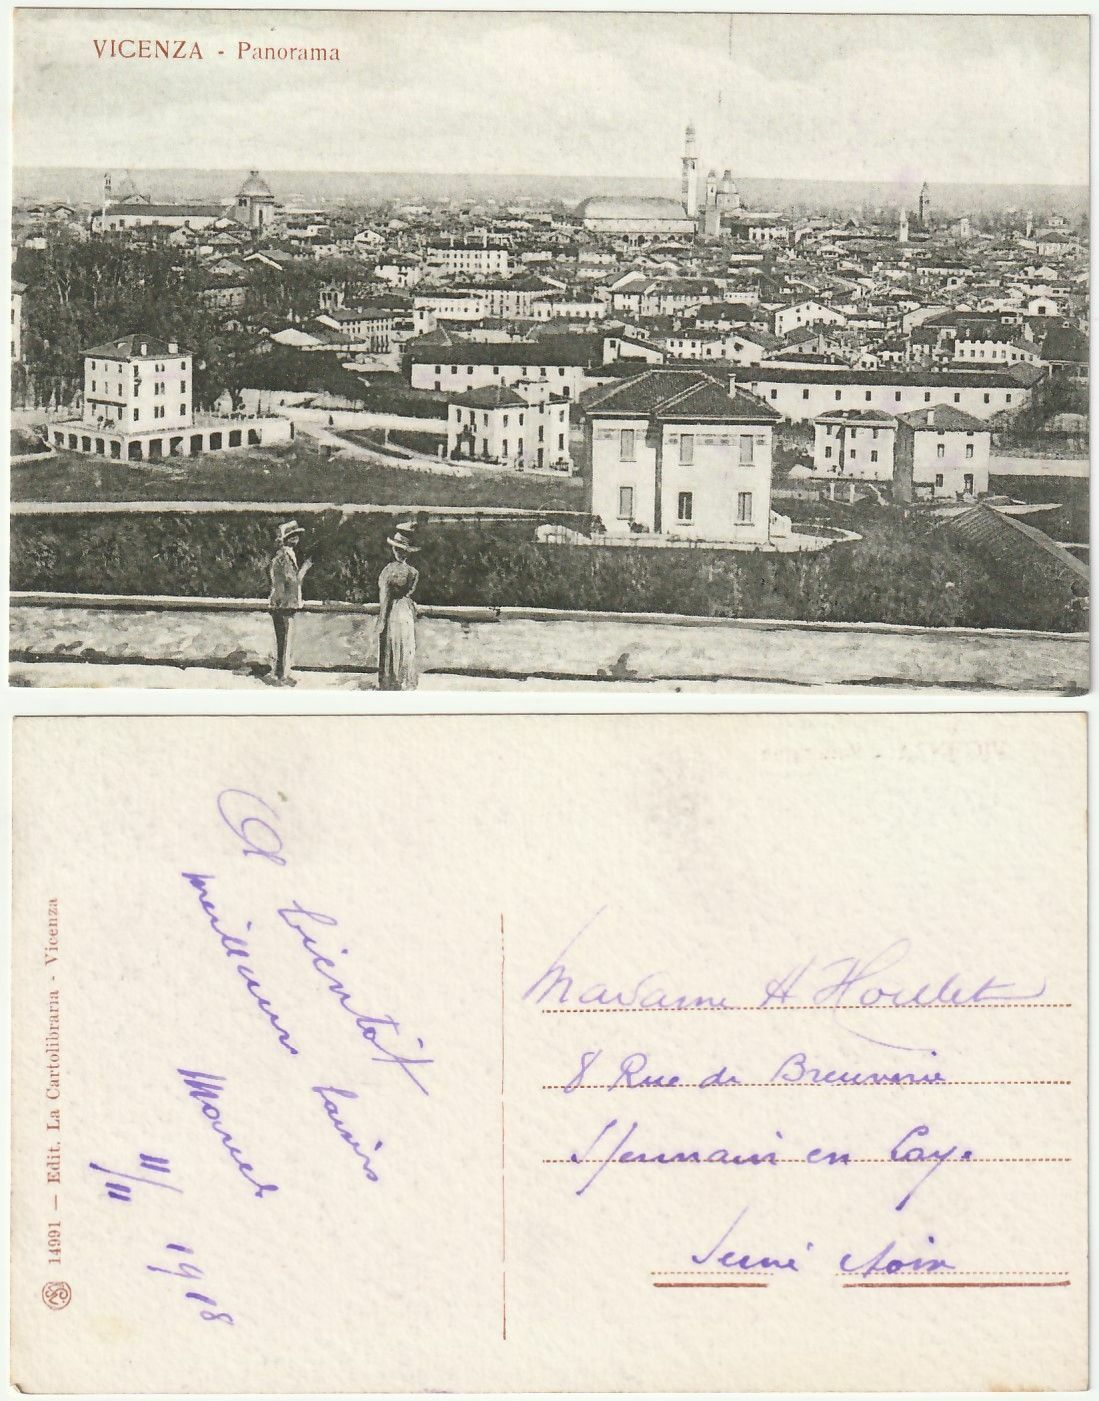 VICENZA - Panorama
14991 — Edit. La Cartolibraria - Vicenza
A bientôt
meilleurs baisers
Marcel
11/11 1918
Madame H Houlet
8 Rue de
St Germain en Laye
Seine et Oise